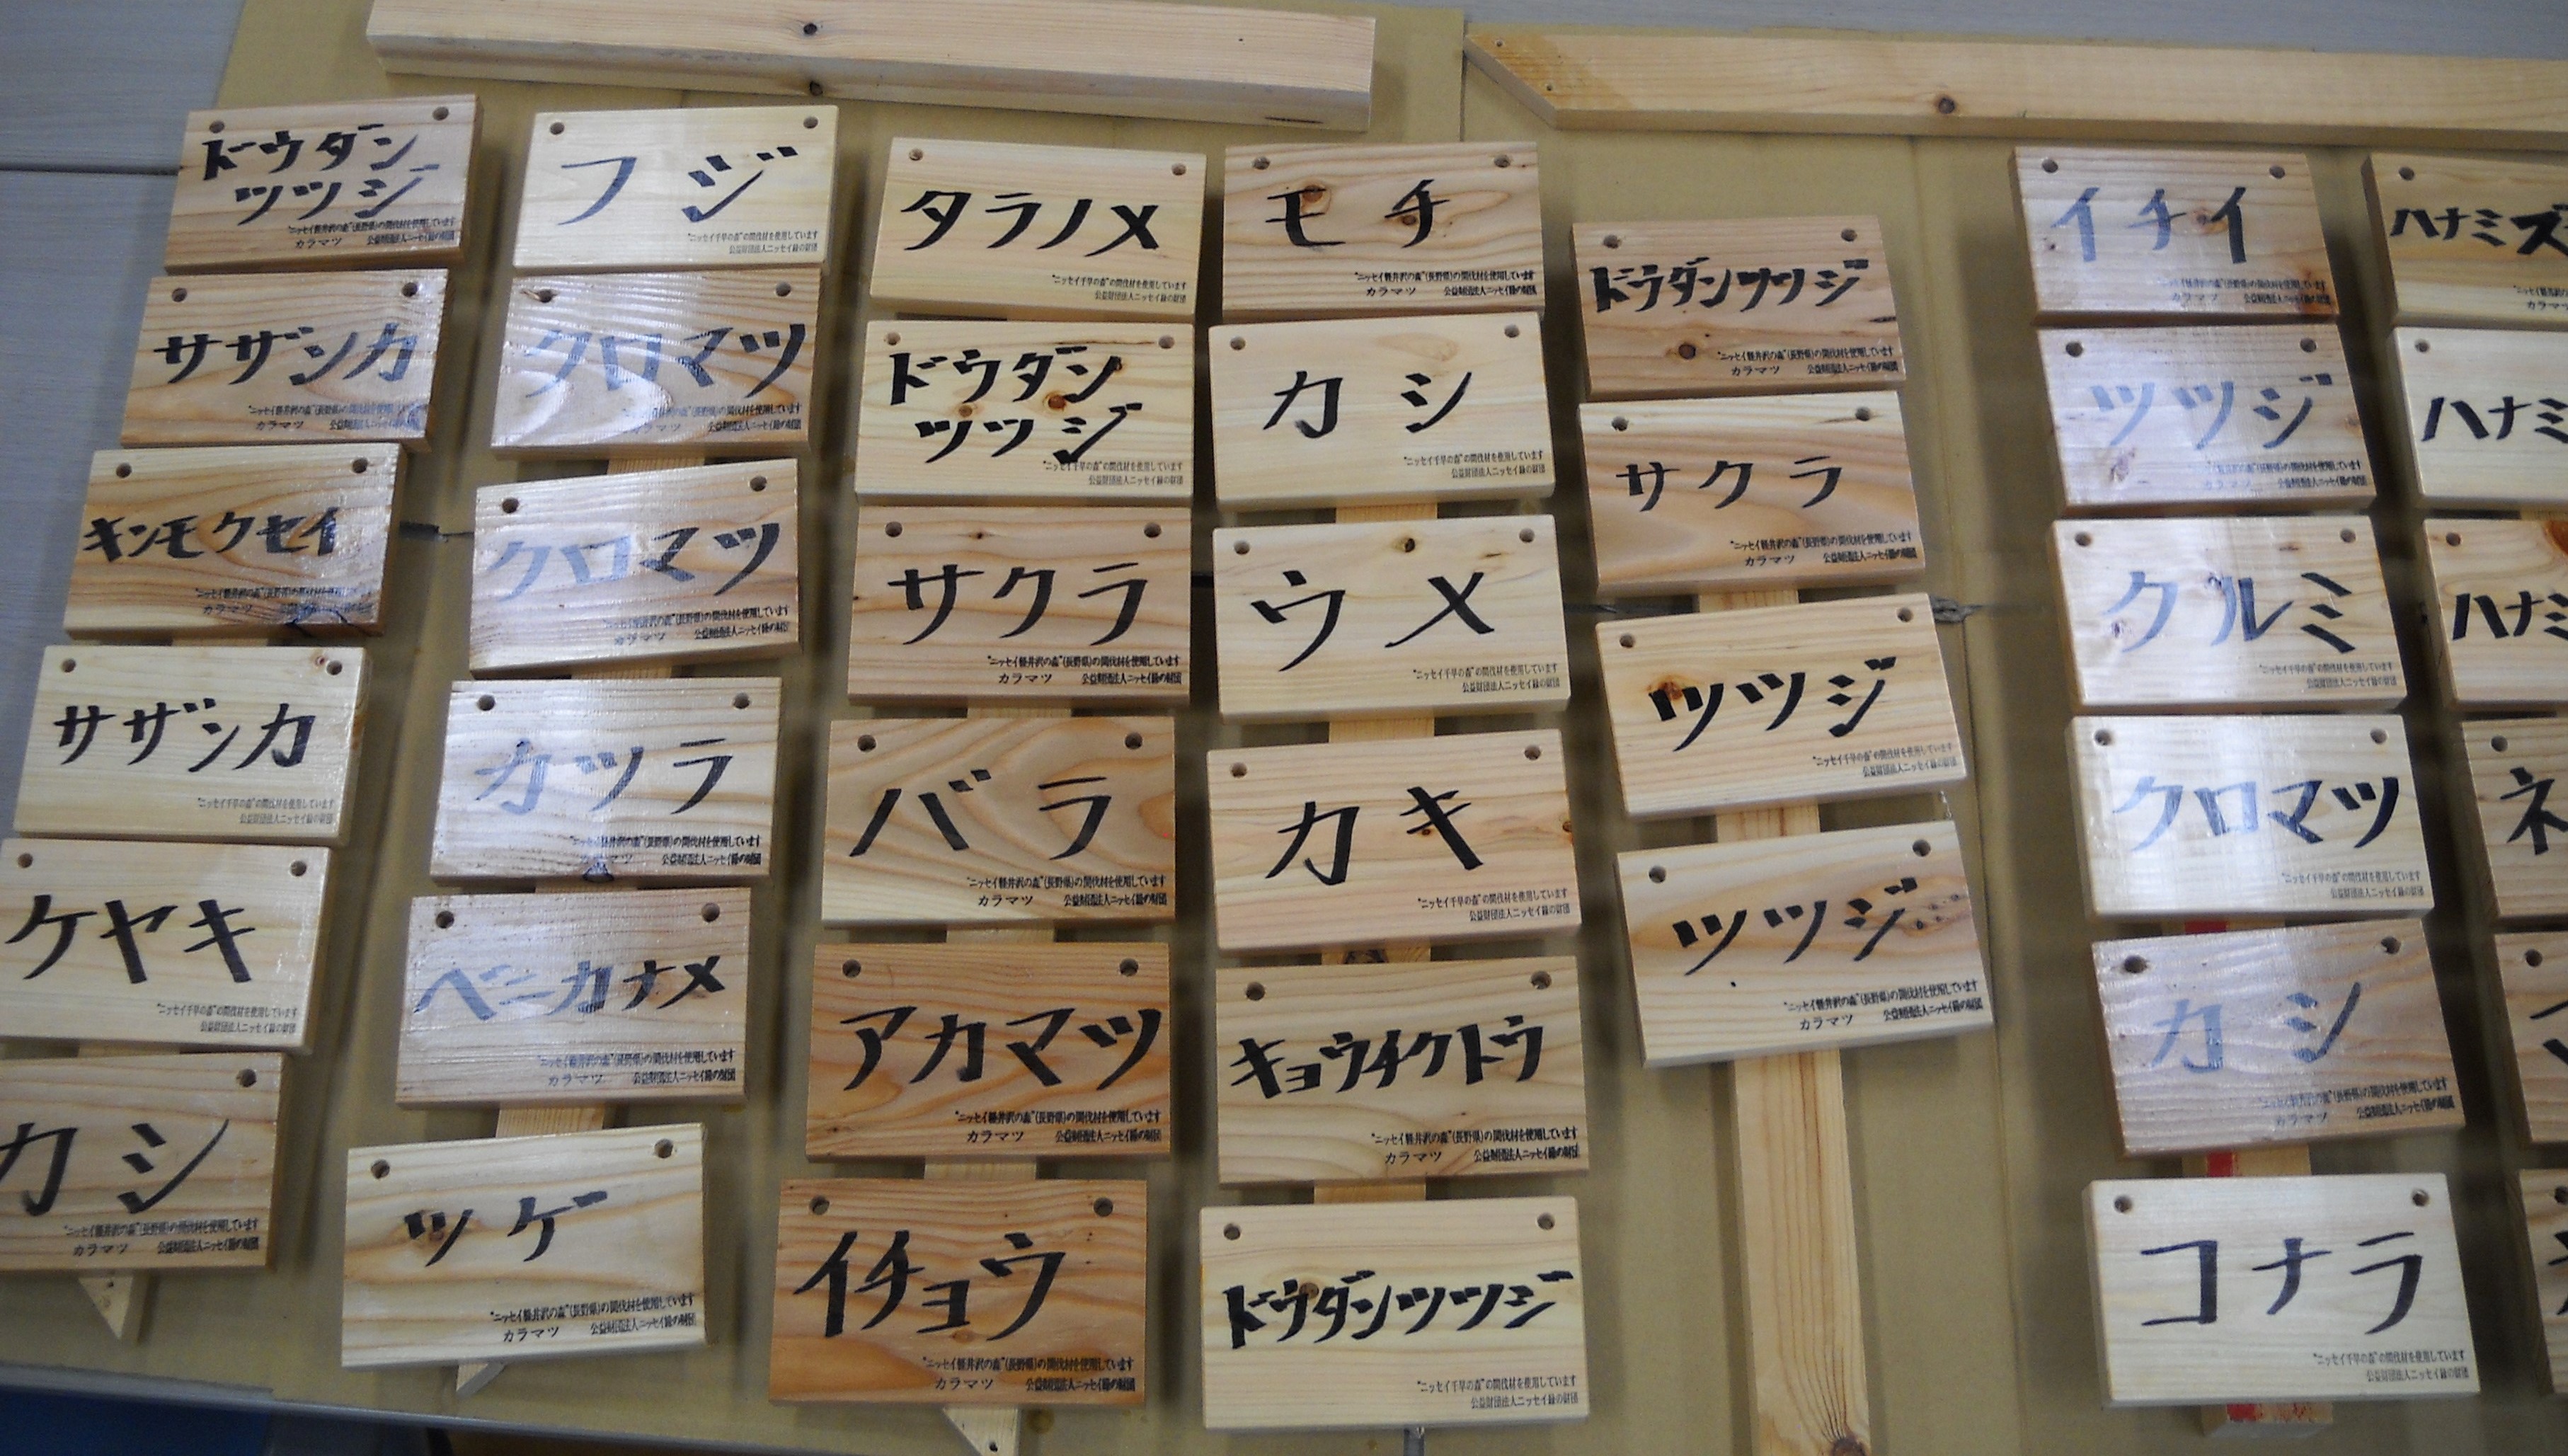 ドーウダン
ツツジ
"ニッセイ軽井沢の森"(長野県)の間伐材を使用しています
カラマツ 公益財団法人ニッセイ緑の財団
サザンカ
"ニッセイ軽井沢の森"(長野県)の間伐材を使用しています
カラマツ 公益財団法人ニッセイ緑の財団
キンモクセイ
"ニッセイ軽井沢の森"(長野県)の間伐材を使用しています
カラマツ
サザンカ
"ニッセイ千早の森"の間伐材を使用しています
公益財団法人ニッセイ緑の財団
ケヤキ
"ニッセイ千早の森"の間伐材を使用しています
公益財団法人ニッセイ緑の財団
カシ
"ニッセイ軽井沢の森"(長野県)の間伐材を使用しています
カラマツ 公益財団法人ニッセイ緑の財団
フジ
"ニッセイ千早の森"の間伐材を使用しています
公益財団法人ニッセイ緑の財団
クロマツ
"ニッセイ軽井沢の森"(長野県)の間伐材を使用しています
カラマツ 公益財団法人ニッセイ緑の財団
クロマツ
"ニッセイ軽井沢の森"(長野県)の間伐材を使用しています
カラマツ 公益財団法人ニッセイ緑の財団
カツラ
"ニッセイ軽井沢の森"(長野県)の間伐材を使用しています
カラマツ 公益財団法人ニッセイ緑の財団
ベニカナメ
"ニッセイ軽井沢の森"(長野県)の間伐材を使用しています
カラマツ 公益財団法人ニッセイ緑の財団
ツゲ
"ニッセイ軽井沢の森"(長野県)の間伐材を使用しています
カラマツ 公益財団法人ニッセイ緑の財団
タラノメ
"ニッセイ千早の森"の間伐材を使用しています
公益財団法人ニッセイ緑の財団
ドウダン
ツツジ
"ニッセイ千早の森"の間伐材を使用しています
公益財団法人ニッセイ緑の財団
サクラ
"ニッセイ軽井沢の森"(長野県)の間伐材を使用しています
カラマツ 公益財団法人ニッセイ緑の財団
バラ
"ニッセイ軽井沢の森"(長野県)の間伐材を使用しています
カラマツ 公益財団法人ニッセイ緑の財団
アカマツ
"ニッセイ軽井沢の森"(長野県)の間伐材を使用しています
カラマツ 公益財団法人ニッセイ緑の財団
イチョウ
"ニッセイ軽井沢の森"(長野県)の間伐材を使用しています
カラマツ 公益財団法人ニッセイ緑の財団
モチ
"ニッセイ軽井沢の森"(長野県)の間伐材を使用しています
カラマツ 公益財団法人ニッセイ緑の財団
カシ
"ニッセイ千早の森"の間伐材を使用しています
公益財団法人ニッセイ緑の財団
ウメ
"ニッセイ千早の森"の間伐材を使用しています
公益財団法人ニッセイ緑の財団
カキ
"ニッセイ千早の森"の間伐材を使用しています
公益財団法人ニッセイ緑の財団
キョウチクトウ
"ニッセイ軽井沢の森"(長野県)の間伐材を使用しています
カラマツ 公益財団法人ニッセイ緑の財団
ドウダンツツジ
"ニッセイ千早の森"の間伐材を使用しています
公益財団法人ニッセイ緑の財団
ドウダンツツジ
"ニッセイ軽井沢の森"(長野県)の間伐材を使用しています
カラマツ 公益財団法人ニッセイ緑の財団
サクラ
"ニッセイ軽井沢の森"(長野県)の間伐材を使用しています
カラマツ 公益財団法人ニッセイ緑の財団
ツツジ
"ニッセイ千早の森"の間伐材を使用しています
公益財団法人ニッセイ緑の財団
ツツジ
"ニッセイ軽井沢の森"(長野県)の間伐材を使用しています
カラマツ 公益財団法人ニッセイ緑の財団
イチイ
"ニッセイ軽井沢の森"(長野県)の間伐材を使用しています
カラマツ 公益財団法人ニッセイ緑の財団
ツツジ
"ニッセイ軽井沢の森"(長野県)の間伐材を使用しています
カラマツ 公益財団法人ニッセイ緑の財団
クルミ
"ニッセイ千早の森"の間伐材を使用しています
公益財団法人ニッセイ緑の財団
クロマツ
"ニッセイ千早の森"の間伐材を使用しています
公益財団法人ニッセイ緑の財団
カシ
"ニッセイ軽井沢の森"(長野県)の間伐材を使用しています
カラマツ 公益財団法人ニッセイ緑の財団
コナラ
"ニッセイ千早の森"の間伐材を使用しています
公益財団法人ニッセイ緑の財団
ハナミズ
カラマ
ハナミ
ハナミ
ネ